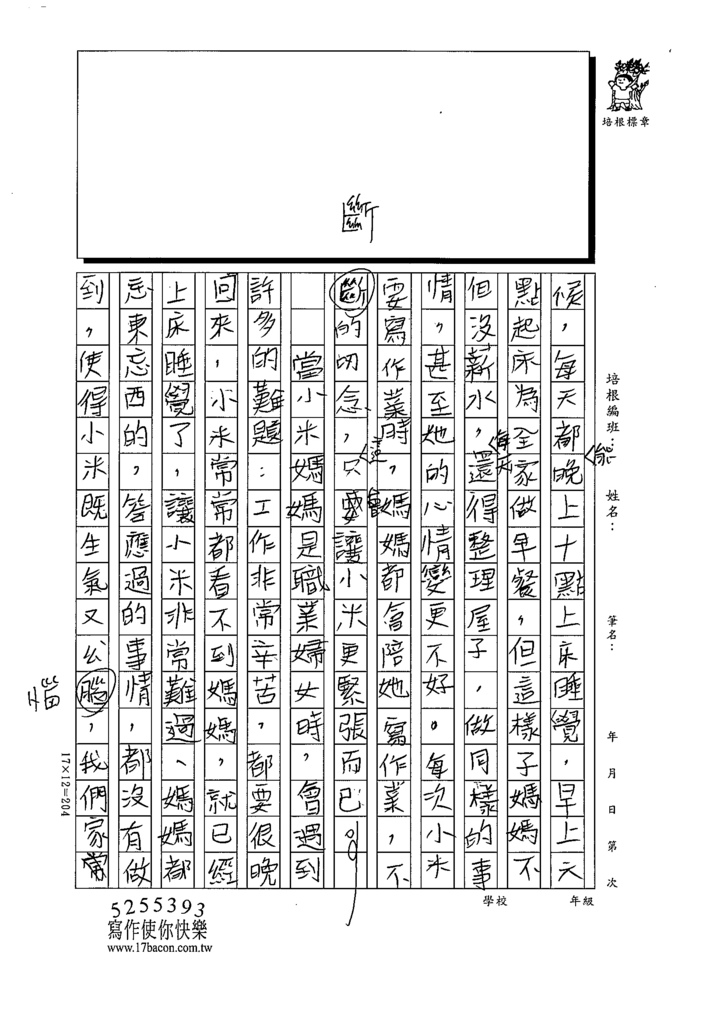 培根標章
斷
培根編班：
姓名：
筆名：
年 月 日 第 次
學校
年級
候，每天都晚上十點上床睡覺，早上六
能
點起床為全家做早餐，但這樣子媽媽不
但沒薪水，還得整理屋子，做同樣的事
每天
情，甚至她的心情變更不好。每次小米
要寫作業時，媽媽都會陪她寫作業，不
斷的叨念，只會讓小米更緊張而已
這
當小米媽媽是職業婦女時，會遇到
許多的難題：工作非常辛苦，都要很晚
回來，小米常常都看不到媽媽，就已經
上床睡覺了，讓小米非常難過、媽媽都
忘東忘西的，答應過的事情，都沒有做
到，使得小米既生氣又公腦，我們家常
惱
17×12=204
5255393
寫作使你快樂
www.17bacon.com.tw